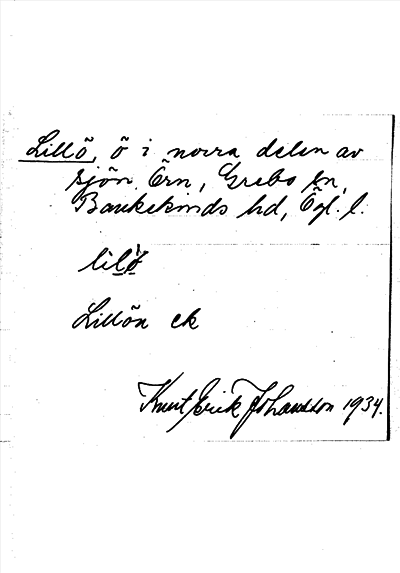 Lillö, ö i norra delen av
sjön Örn, Grebo sn,
Bankekinds hd, Ögl. l.
lilö̀
Lillön ek
Knut Erik Johansson 1934.